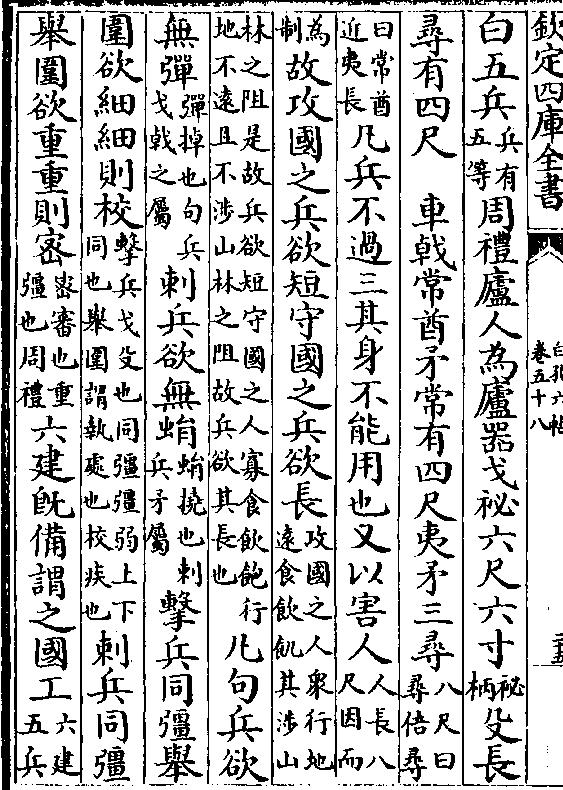 欽定四庫全書 白孔六帖 卷五十八
白五兵兵有五等周禮廬人為廬器戈柲六尺六寸柲柄殳長
尋有四尺 車戟常酋矛常有四尺夷矛三尋八尺曰尋倍尋
曰常酋近夷長凡兵不過三其身不能用也又以害人人長八尺因而
為制故攻國之兵欲短守國之兵欲長攻國之人衆行地遠食飲飢其涉山
林之阻是故兵欲短守國之人寡食飲飽行地不遠且不涉山林之阻故兵欲其長也凡句兵欲
無彈彈掉也句兵戈戟之屬刺兵欲無蜎蜎撓也刺兵矛屬擊兵同彊舉
圍欲細細則校擊兵戈殳也同彊彊弱上下同也舉圍謂執處也校疾也刺兵同彊
舉圍欲重重則密密審也重彊也周禮六建既備謂之國工六建五兵